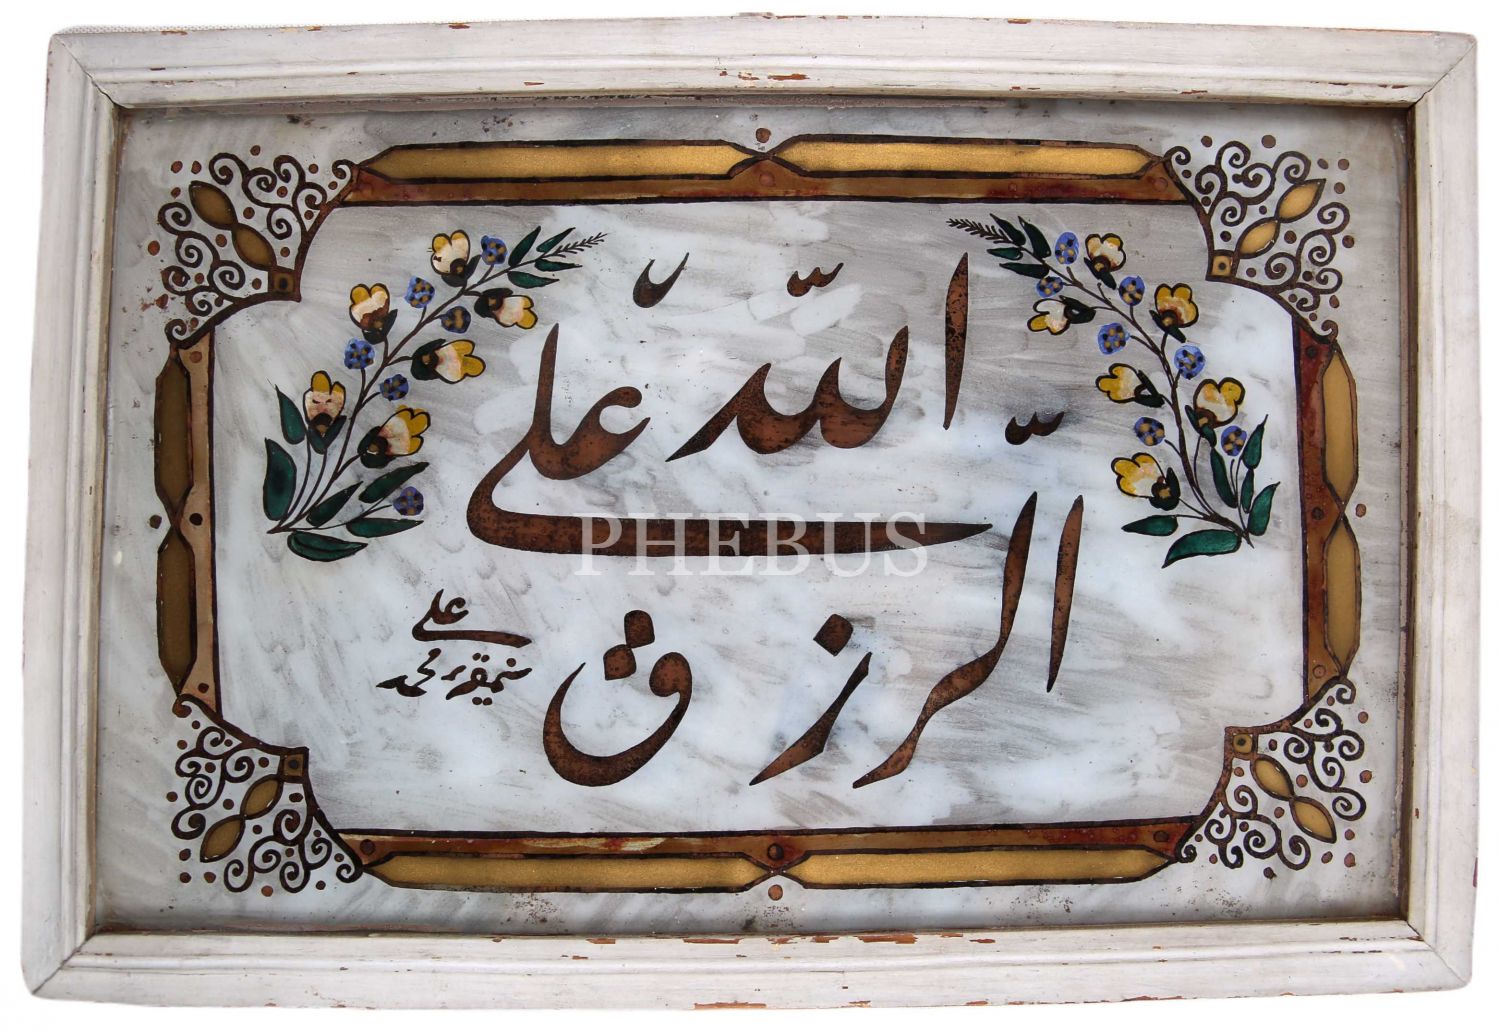 الرزق
على الله
نمقه محمد
علي
PHEBUS